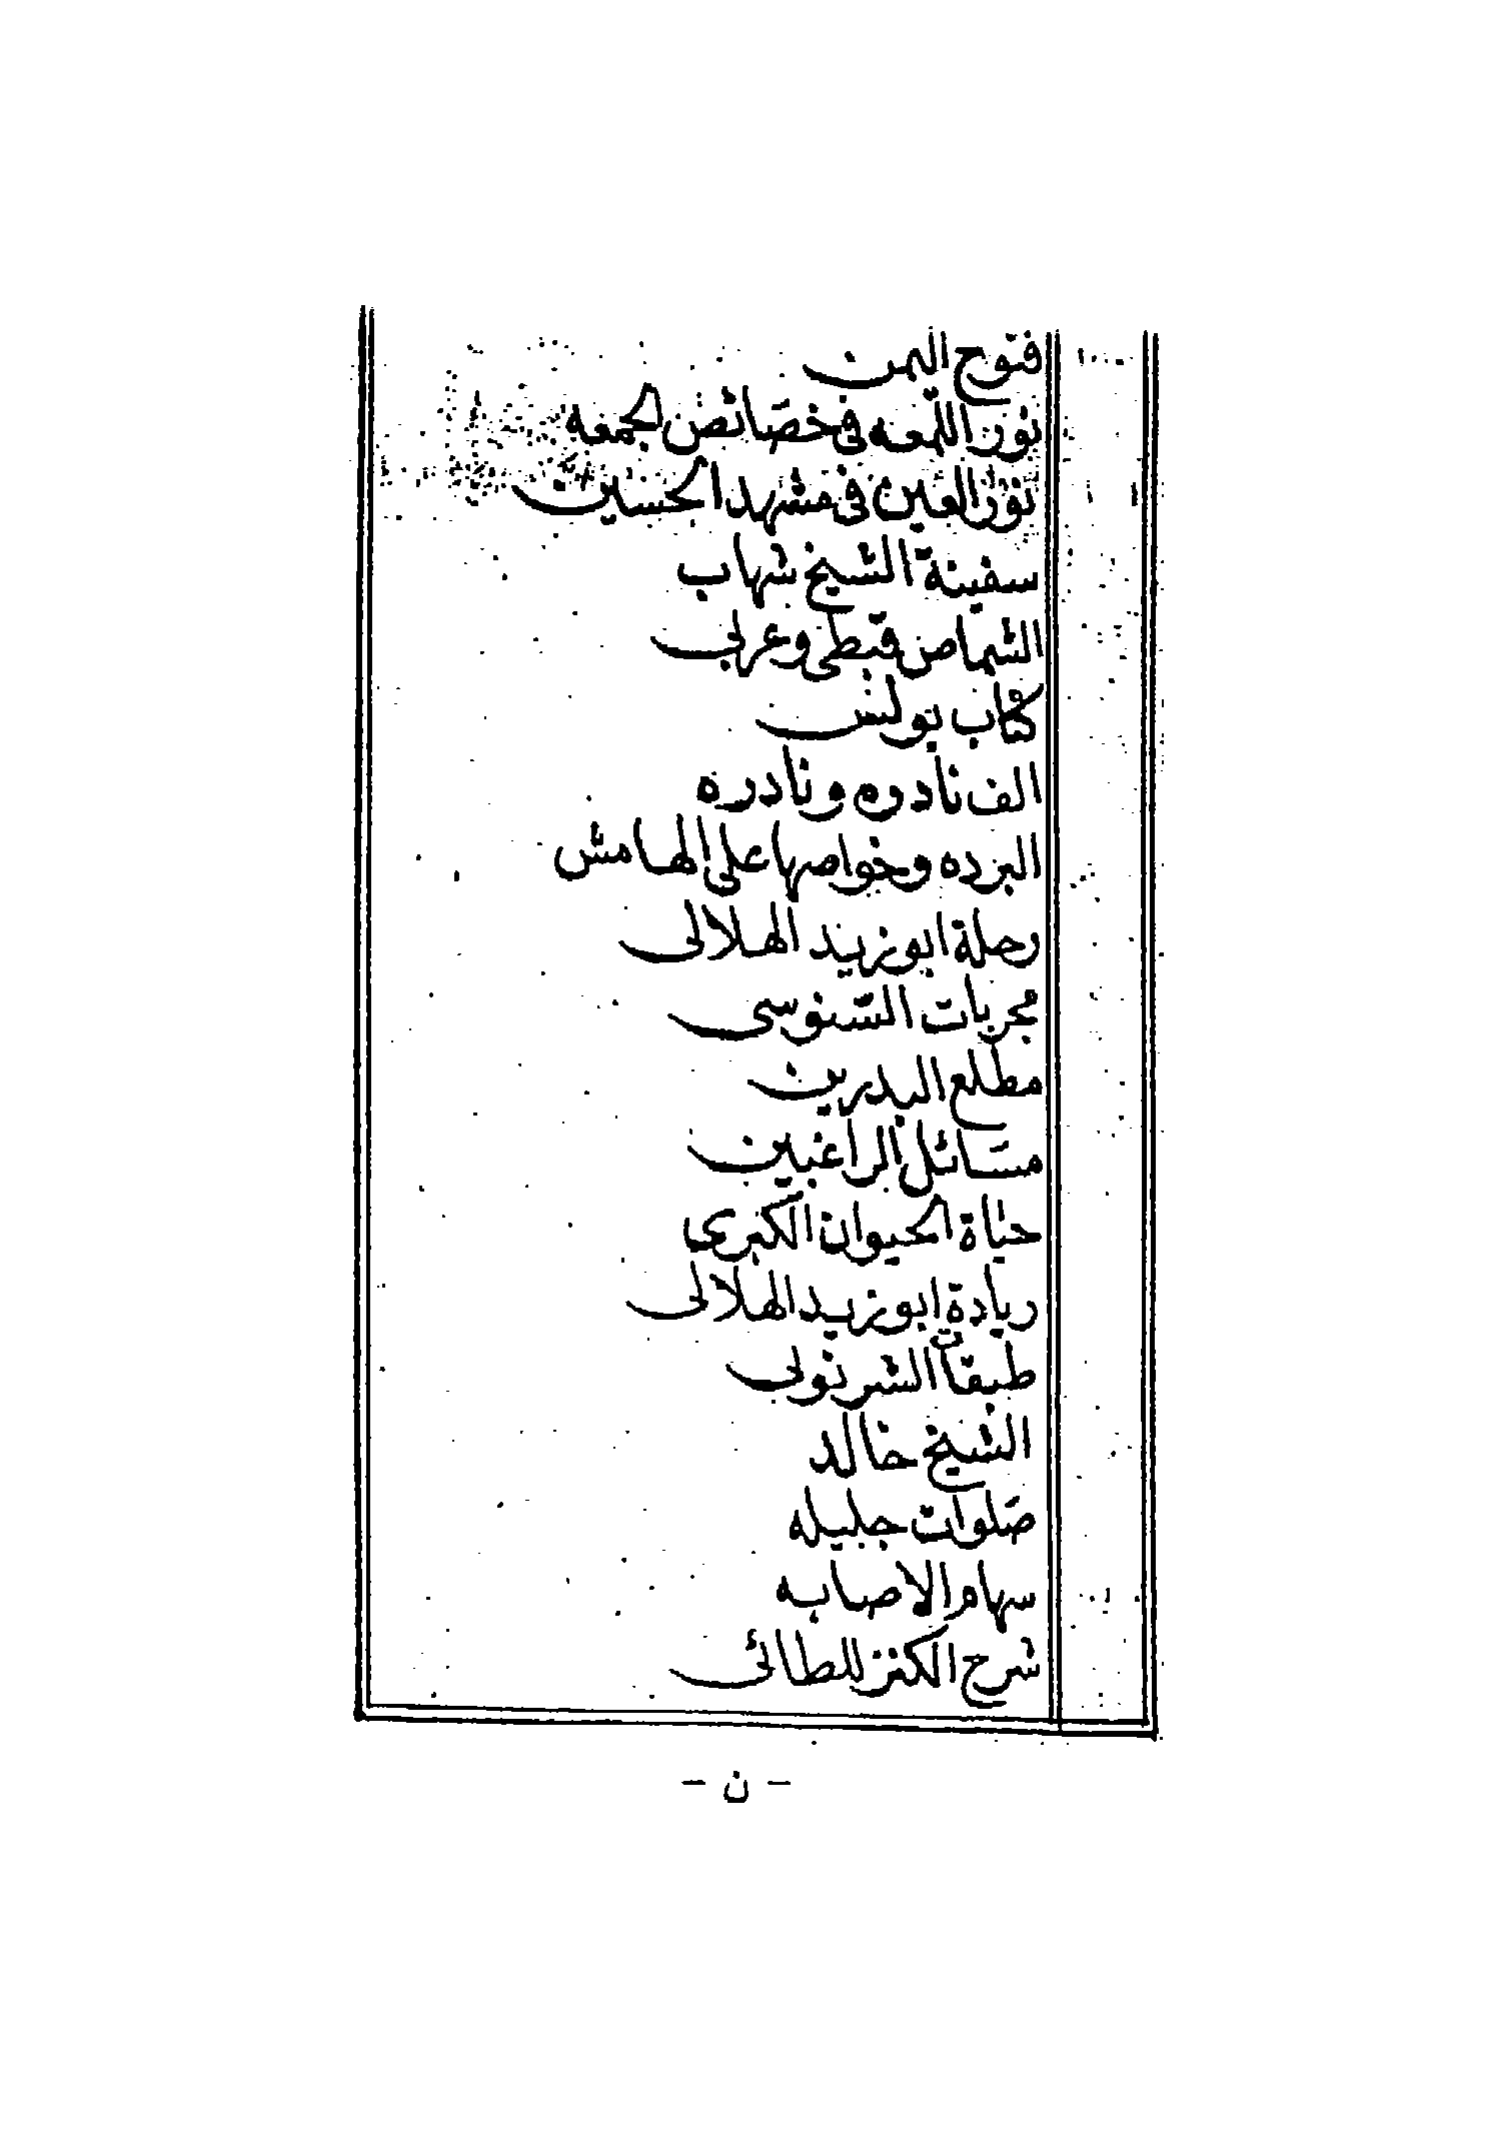 فتوح اليمن
نور اللمعه فى خصائص الجمعه
نور العين فى مشهد الحسين
سفينة الشيخ شهاب
الشماص قبطى وعربى
كتاب بولس
الف نادره ونادره
البرده وخواصها على الهامش
رحلة ابو زيد الهلالى
مجربات السنوسى
مطلع البدرين
مسائل الراغبين
حياة الحيوان الكبرى
ريادة ابو زيد الهلالى
طبقات الشرنوبى
الشيخ خالد
صلوات جليله
سهام الاصابه
شرح الكنز للطائى
- ن -